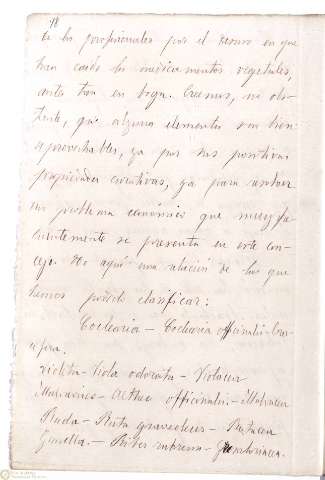 18
de los profesionales por el desuso en que
han caído los medicamentos vegetales,
antes tan en boga. Creemos, no obs-
tante, que algunos elementos son bien
aprovechables, ya por sus positivas
propiedades curativas, ya para resolver
un problema económico que muy fre-
cuentemente se presenta en este con-
cejo. He aquí una relación de los que
hemos podido clasificar:
Coclearia - Coclearia officinalis - Cru-
cifera.
Violeta - Viola odorata - Violacea
Malvavisco - Althea officinalis - Malvacea
Ruda - Ruta graveoleus - Rutacea
Grosella. - Ribes rubrum - Grosulariacea.